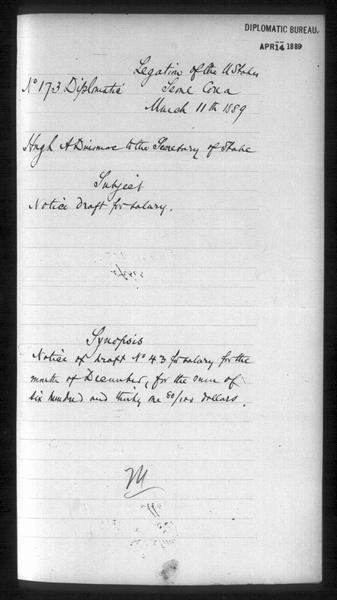 DIPLOMATIC BUREAU.
APR 14 1889
Legation of the U States
No 173 Diplomatic Seoul Corea
March 11th 1889
Hugh A Dinsmore to the Secretary of State
Subject
Notice Draft for Salary.
Synopsis
Notice of draft No 43 for salary for the
month of December, for the sum of
six hundred and thirty one 80/100 dollars.
M